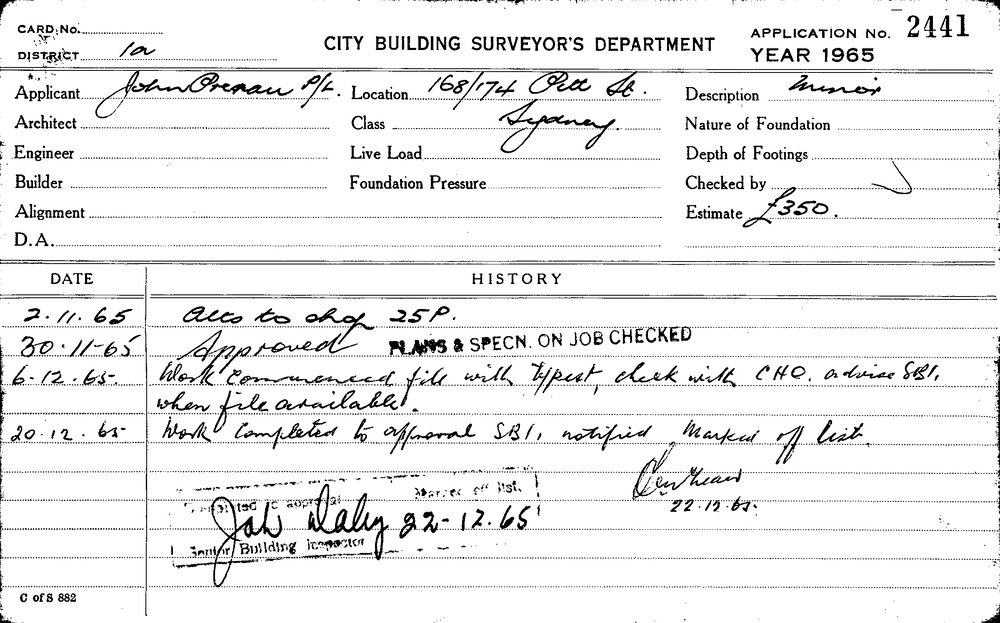 CARD No.
APPLICATION No. 2441
DISTRICT 1a
CITY BUILDING SURVEYOR'S DEPARTMENT
YEAR 1965
Applicant John P/L. Location 168/174 Pitt St. Description Minor
Architect Class Sydney. Nature of Foundation
Engineer Live Load Depth of Footings
Builder Foundation Pressure Checked by
Alignment Estimate £350.
D.A.
DATE HISTORY
2.11.65 Alts to shop 25P.
30.11-65 Approved PLANS & SPECN. ON JOB CHECKED
6.12.65. Work commenced, file with typist, check with CHO. advise SBI,
when file available.
20.12.65 Work completed to approval SBI, notified Marked off list.
22.12.65.
Completed to approval Marked off list.
Jah Daley 22-12.65
Senior Building Inspector
C of S 882